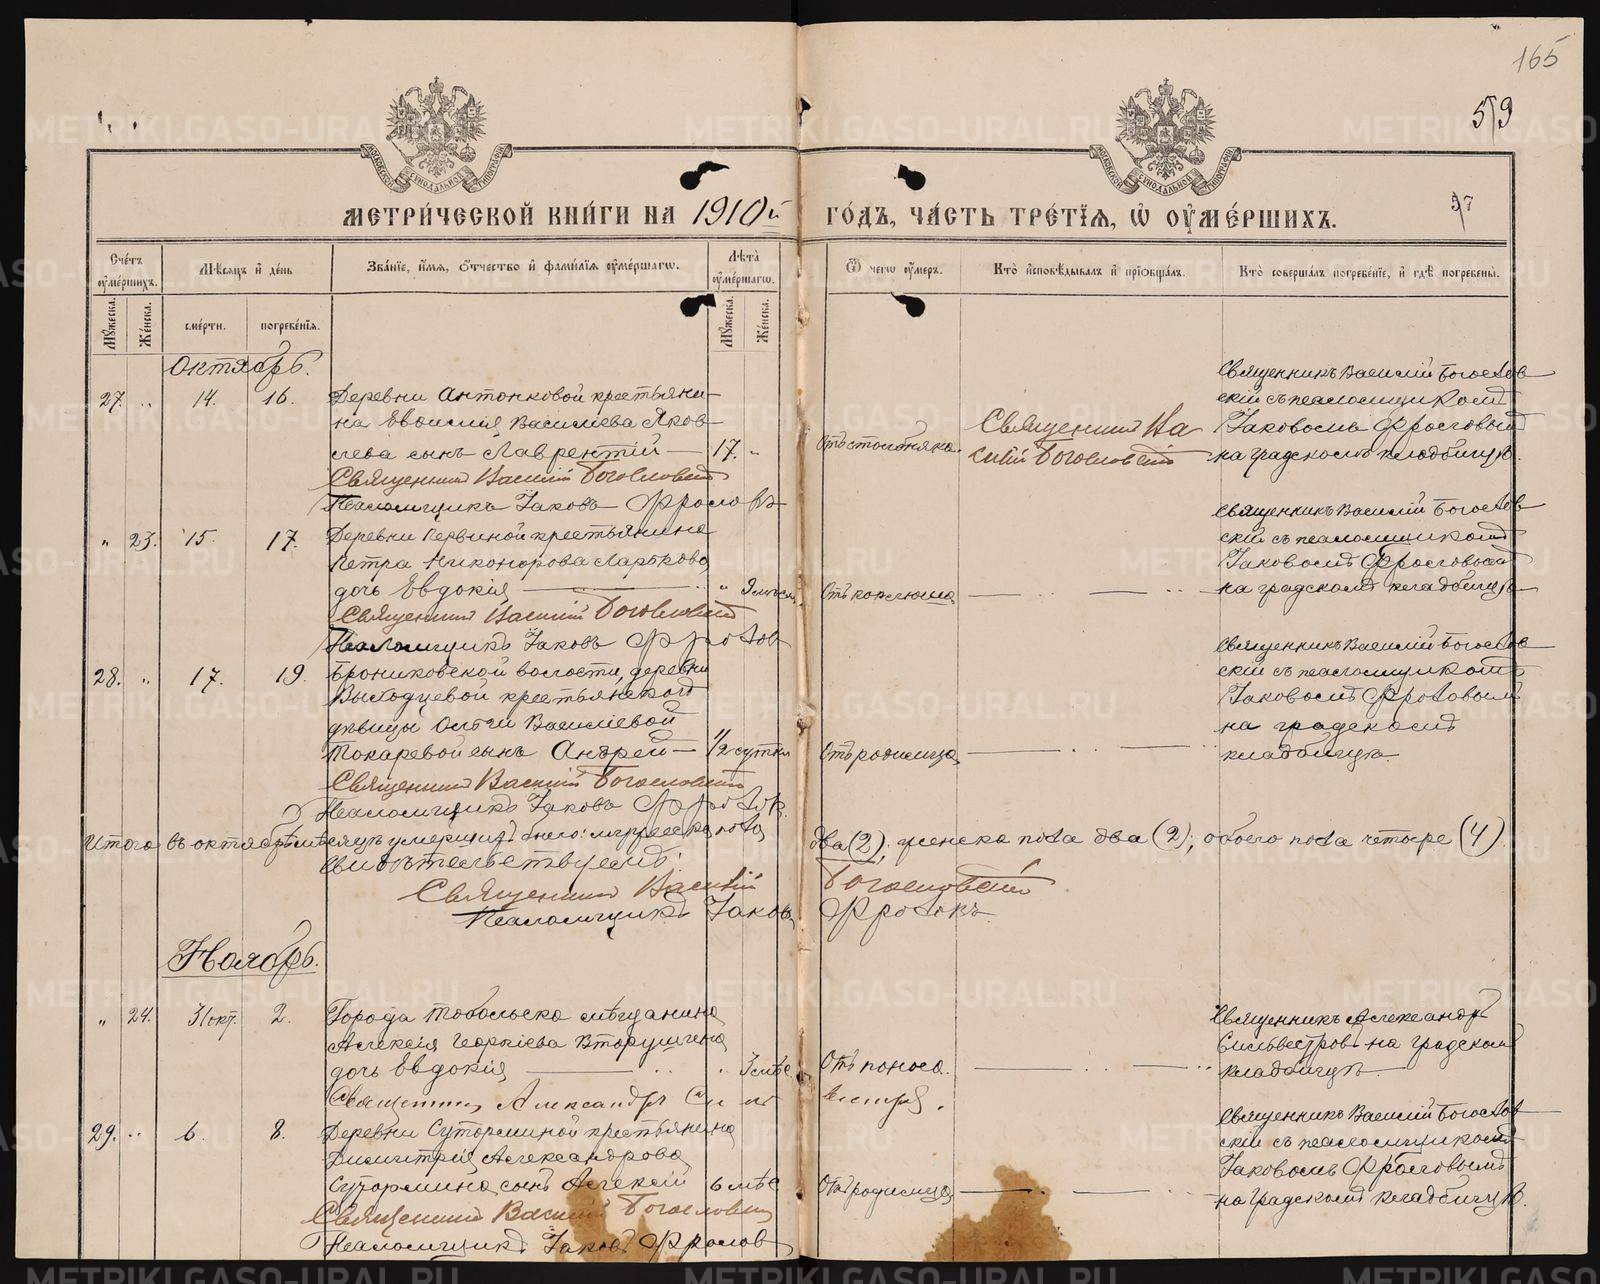 165
59
57
МОСКОВСКОЙ СѴНОДАЛЬНОЙ ТИПОГРАФІИ
МОСКОВСКОЙ СѴНОДАЛЬНОЙ ТИПОГРАФІИ
МЕТРИ́ЧЕСКОЙ КНИ́ГИ НА 1910й ГО́ДЪ, ЧА́СТЬ ТРЕ́ТІЯ, Ѡ ОУМЕ́РШИХЪ.
Сче́тъ оумéршихъ.
Мѣ́сяцъ и де́нь
Зва́нїе, и́мя, о́тчество и фами́лїя оумéршагѡ.
Лѣ́та оумéршагѡ.
Ѿ чегѡ̀ оу́меръ.
Кто̀ и҆сповѣ́дывалъ и҆ прїѡбща́лъ.
Кто̀ соверша́лъ погребе́нїе, и҆ гдѣ̀ погребены̀.
Мꙋ́жеска.
Же́нска.
сме́рти.
погребе́нїя.
Мꙋ́жеска.
Же́нска.
Октябрь.
27. " 14. 16.
Деревни Антонковой крестьяни-
на Евѳимія Васильева Яков-
лева сынъ Лаврентій — 17. "
Отъ столбняка.
Священникъ Ва
силій Богословскій
Священникъ Василій Богослов
скій съ псаломщикомъ
Іаковомъ Фроловымъ
на градскомъ кладбищѣ.
Священникъ Василій Богословскій
Псаломщикъ Іаковъ Фроловъ
" 23. 15. 17.
Деревни крестьянина
Петра Никонорова
дочь Евдокія — " 9 мѣсяц
Отъ коклюша
Священникъ Василій Богослов
скій съ псаломщикомъ
Іаковомъ Фроловымъ
на градскомъ кладбищѣ
Священникъ Василій Богословскій
Псаломщикъ Іаковъ Фролов
28. " 17. 19.
Брониковской волости, деревни
Выходцевой крестьянской
дѣвицы Ольги Васильевой
Токаревой сынъ Андрей — 1/2 сутки
Отъ родимца
Священникъ Василій Богослов
скій съ псаломщикомъ
Іаковомъ Фроловымъ
на градскомъ
кладбищѣ.
Священникъ Василій Богословскій
Псаломщикъ Іаковъ Фролов
Итого въ октябрѣ мѣсяцѣ умершихъ было: мужеска пола два (2); женска пола два (2); обоего пола четыре (4)
Свидѣтельствуемъ:
Священникъ Василій Богословскій
Псаломщикъ Іаковъ Фроловъ
Ноябрь.
" 24. 31 окт. 2.
Города Тобольска мѣщанина
Алексія Георгіева Вторушина
дочь Евдокія — " 3 мѣс.
Отъ поноса.
Священникъ Александръ
Сильвестровъ на градскомъ
кладбищѣ.
Священникъ Александръ
29. " 6. 8.
Деревни Сутормины крестьянина
Димитрія Александрова
Сутормина сынъ Алексій 6 мѣс
Отъ родимца
Священникъ Василій Богослов
скій съ псаломщикомъ
Іаковомъ Фроловымъ
на градскомъ кладбищѣ.
Священникъ Василій Богословскій
Псаломщикъ Іаковъ Фролов
METRIKI.GASO-URAL.RU